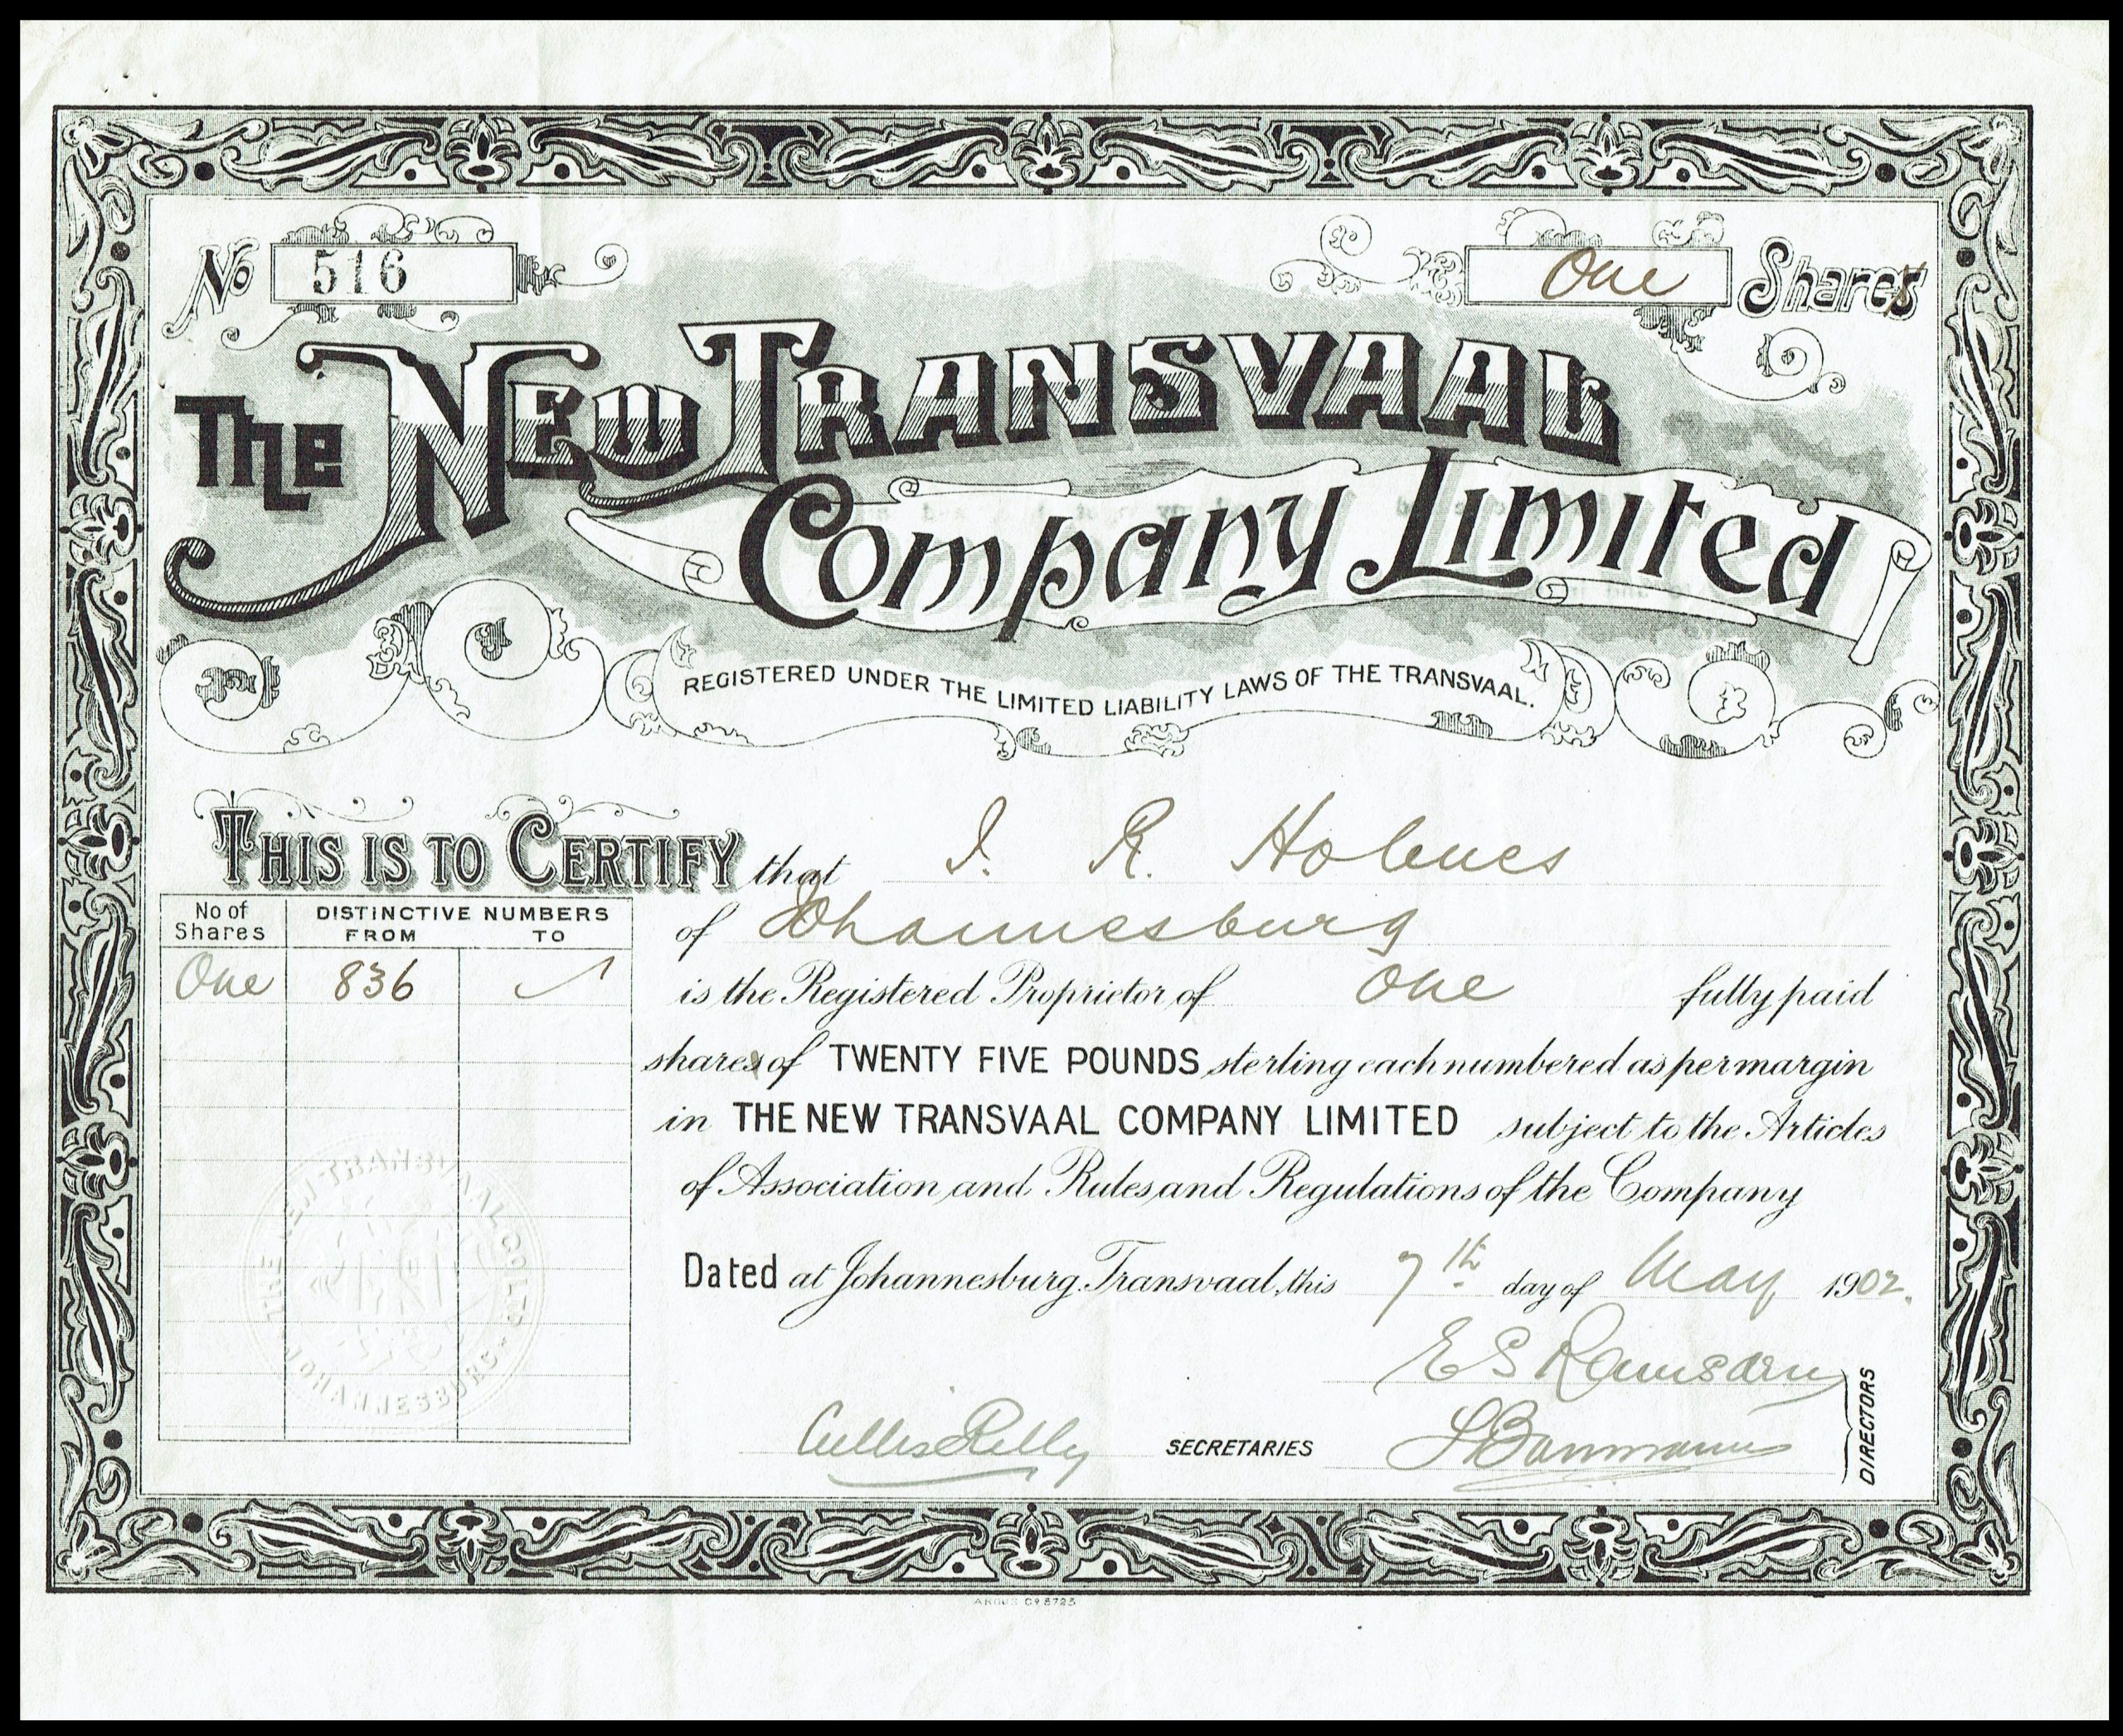 No 516
One Shares
The New Transvaal
Company Limited
REGISTERED UNDER THE LIMITED LIABILITY LAWS OF THE TRANSVAAL.
THIS IS TO CERTIFY that I. R. Holmes
of Johannesburg
is the Registered Proprietor of One fully paid
shares of TWENTY FIVE POUNDS sterling each numbered as per margin
in THE NEW TRANSVAAL COMPANY LIMITED subject to the Articles
of Association and Rules and Regulations of the Company
Dated at Johannesburg. Transvaal, this 7th day of May 1902.
No of Shares
DISTINCTIVE NUMBERS
FROM TO
One 836
THE NEW TRANSVAAL CO LTD
JOHANNESBURG
E S
SECRETARIES
DIRECTORS
ARGUS Co 8723